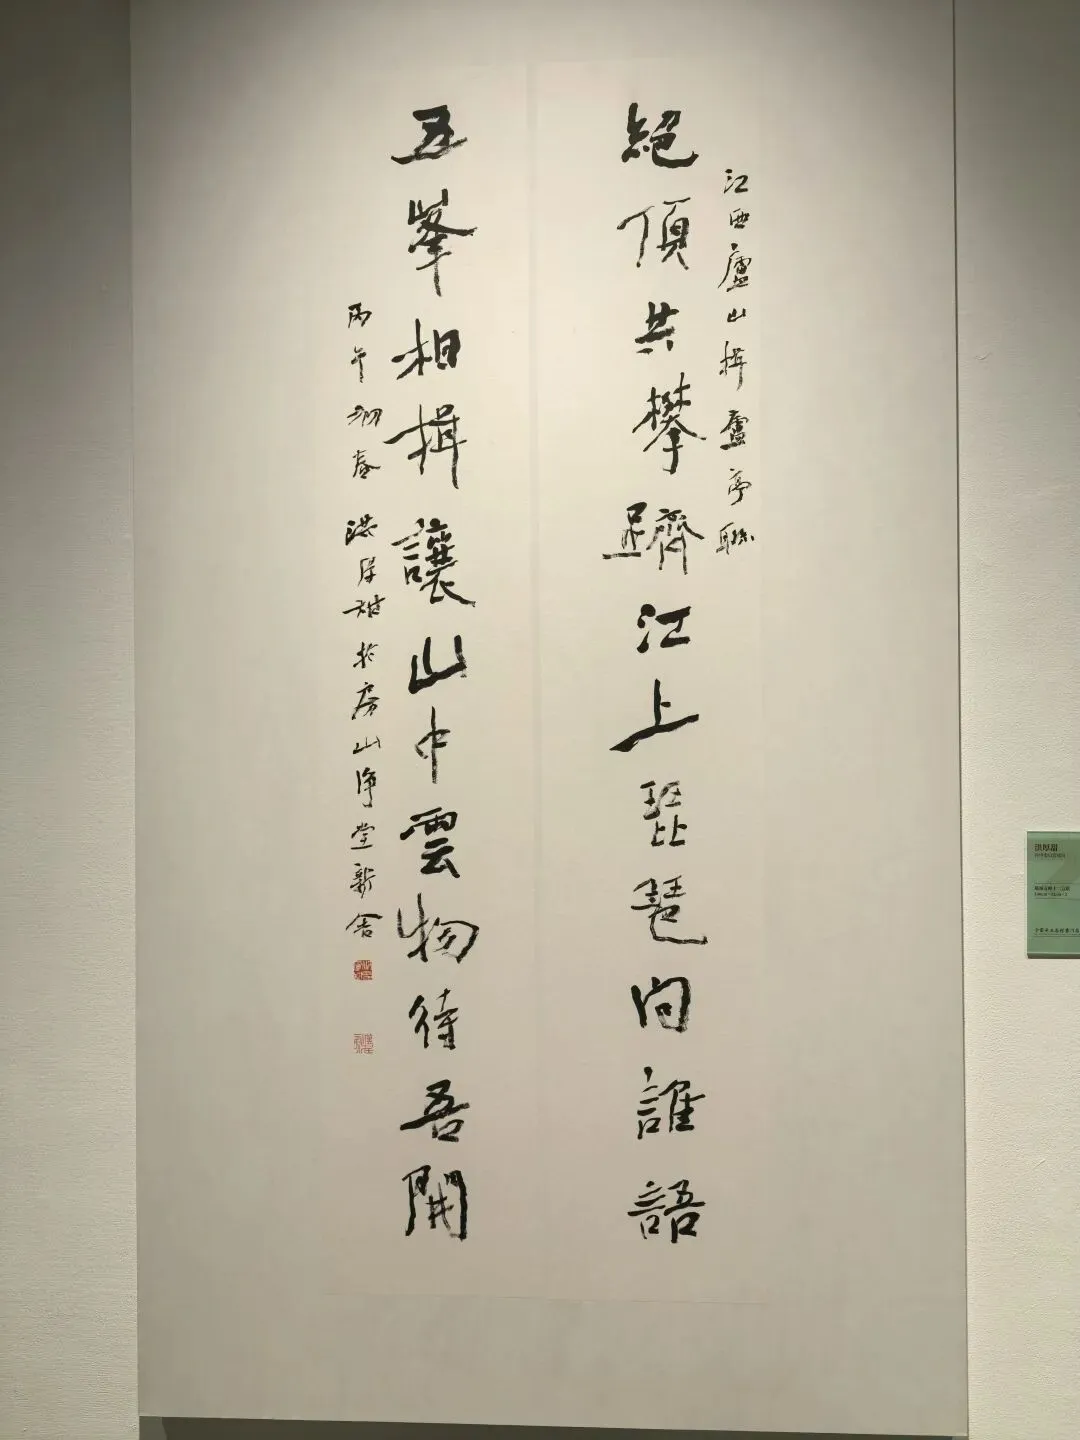 江西廬山揖廬亭聯
絕頂共攀躋江上琵琶向誰語
五峯相揖讓山中雲物待吾開
丙午初春洪厚甜於房山淨堂新舍
洪厚甜